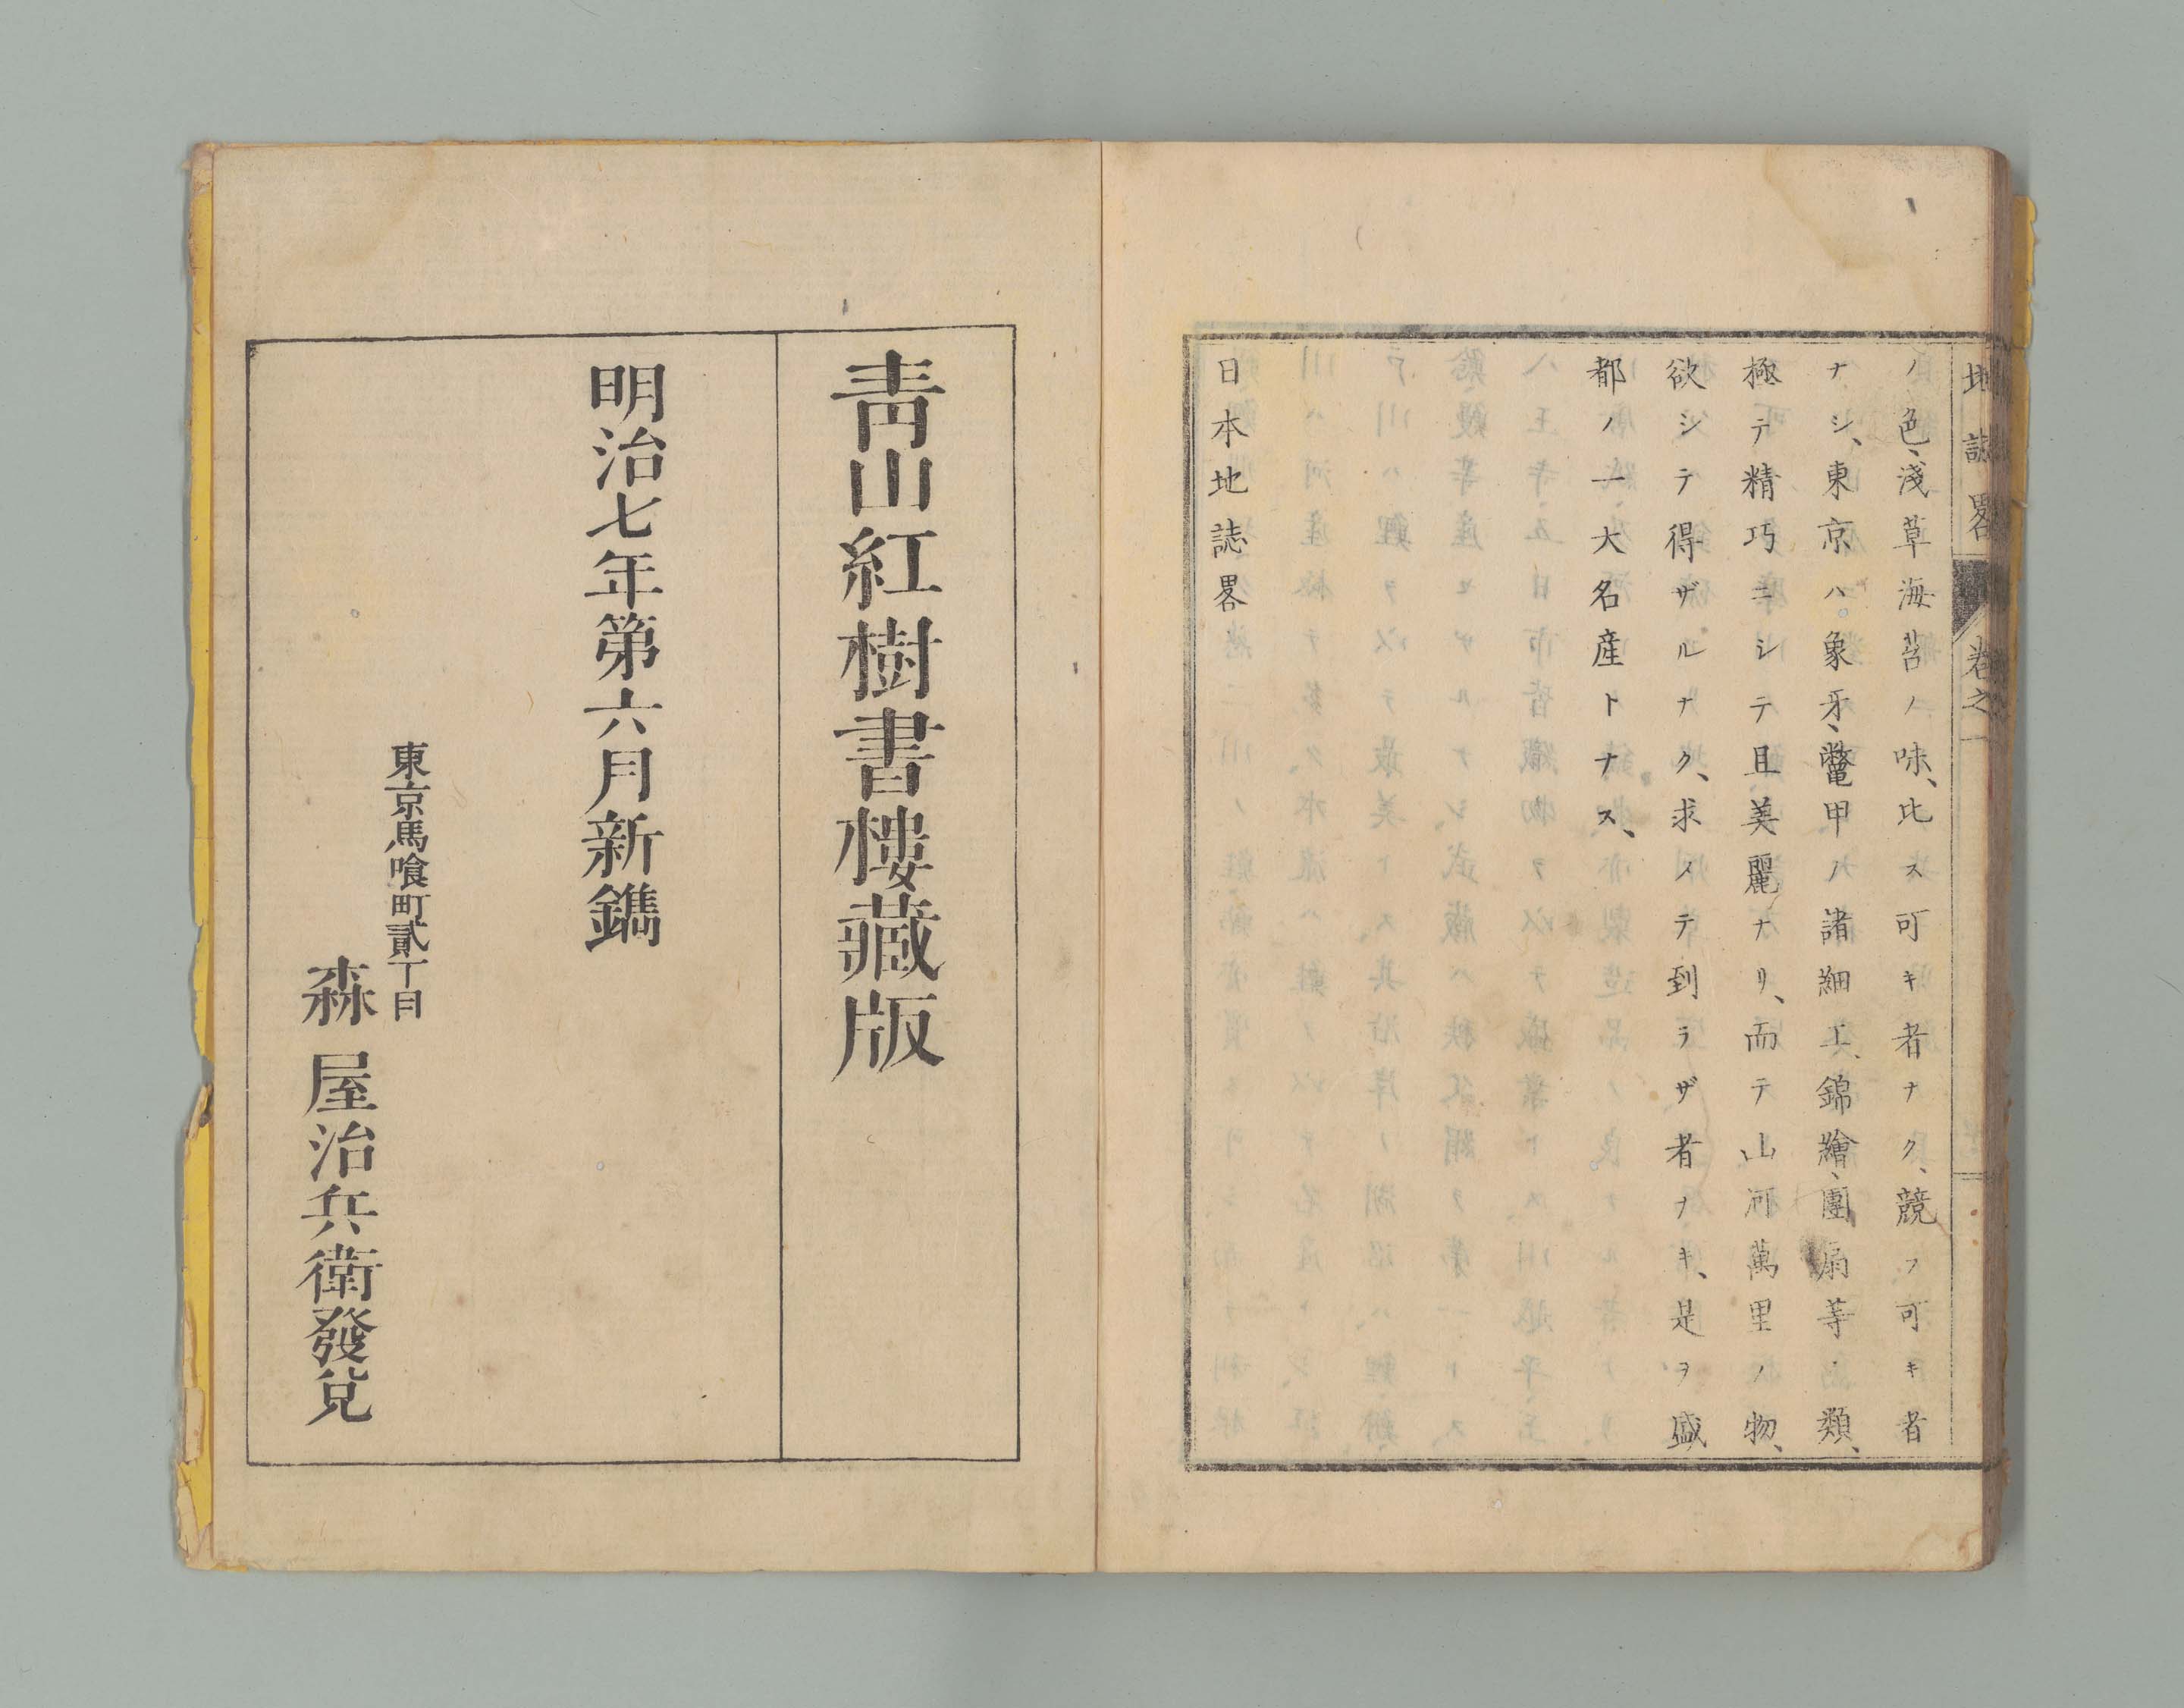 地誌畧 卷之一
ノ色、淺草海苔ノ味、比ス可キ者ナク、競フ可キ者
ナシ、東京ハ象牙、鼈甲ノ諸細工、錦繪、團扇等ノ類、
極テ精巧ニシテ且美麗ナリ、而テ山河萬里ノ物、
欲シテ得ザルナク、求メテ到ラザ者ナキ、是ヲ盛
都ノ一大名産トナス、
日本地誌畧
靑山紅樹書樓藏版
明治七年第六月新鐫
東京馬喰町貳丁目
森屋治兵衛發兌